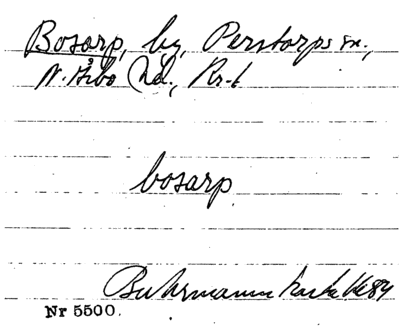 Bosarp, by, Perstorps sn.,
N. Åsbo hd., Kr-l
bosarp
Buhrmanns karta 1684
Nr 5500.